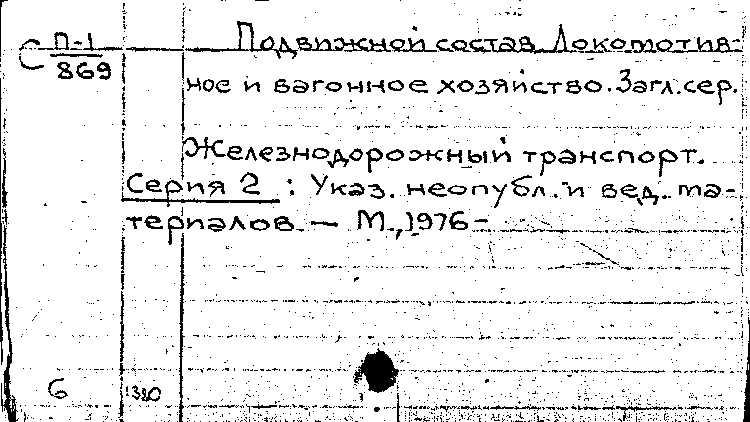 С П-1
869
Подвижной состав. Локомотив-
ное и вагонное хозяйство. Загл. сер.
Железнодорожный транспорт.
Серия 2 : Указ. неопубл. и вед. ма-
териалов. — М., 1976 -
6
1380